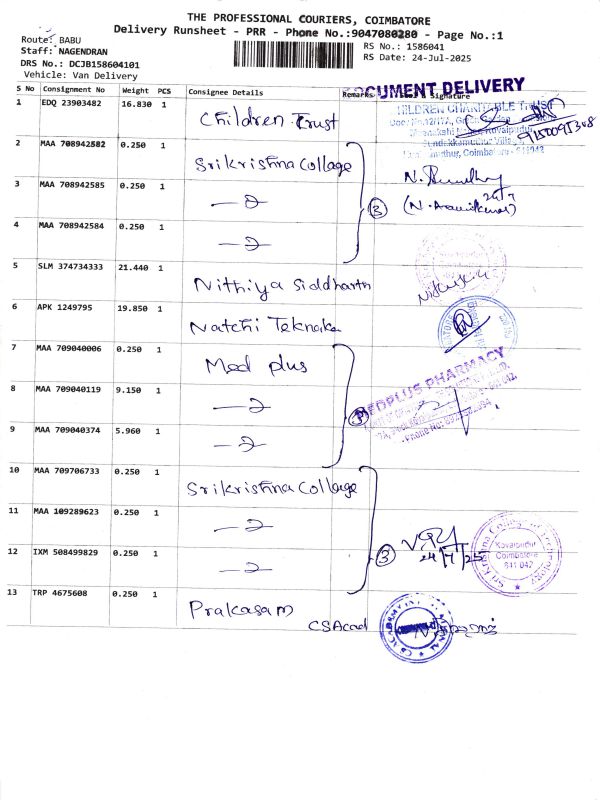 THE PROFESSIONAL COURIERS, COIMBATORE
Delivery Runsheet - PRR - Phone No.:9047080280 - Page No.:1
Route: BABU
Staff: NAGENDRAN
RS No.: 1586041
DRS No.: DCJB158604101
RS Date: 24-Jul-2025
Vehicle: Van Delivery
DOCUMENT DELIVERY
S No Consignment No Weight PCS Consignee Details Remarks Seal & Signature
1 EDQ 23903482 16.830 1 Children Trust
CHILDREN CHARITABLE TRUST
Coimbatore - 641042
2 MAA 708942582 0.250 1 Srikrishna Collage
3 MAA 708942585 0.250 1 —〃
4 MAA 708942584 0.250 1 —〃
3
24/7
5 SLM 374734333 21.440 1 Nithiya Siddharth
6 APK 1249795 19.850 1 Natchi Teknake
7 MAA 709040006 0.250 1 Med plus
8 MAA 709040119 9.150 1 —〃
9 MAA 709040374 5.960 1 —〃
3
MEDPLUS PHARMACY
10 MAA 709706733 0.250 1 Srikrishna Collage
11 MAA 109289623 0.250 1 —〃
12 IXM 508499829 0.250 1 —〃
3
24/7/25
Sri Krishna College of Technology
Kovaipudur
Coimbatore
641 042
13 TRP 4675608 0.250 1 Prakasam
CS Acad